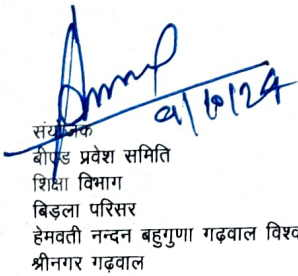 9/10/24
संयोजक
बीएड प्रवेश समिति
शिक्षा विभाग
बिड़ला परिसर
हेमवती नन्दन बहुगुणा गढ़वाल विश्व
श्रीनगर गढ़वाल